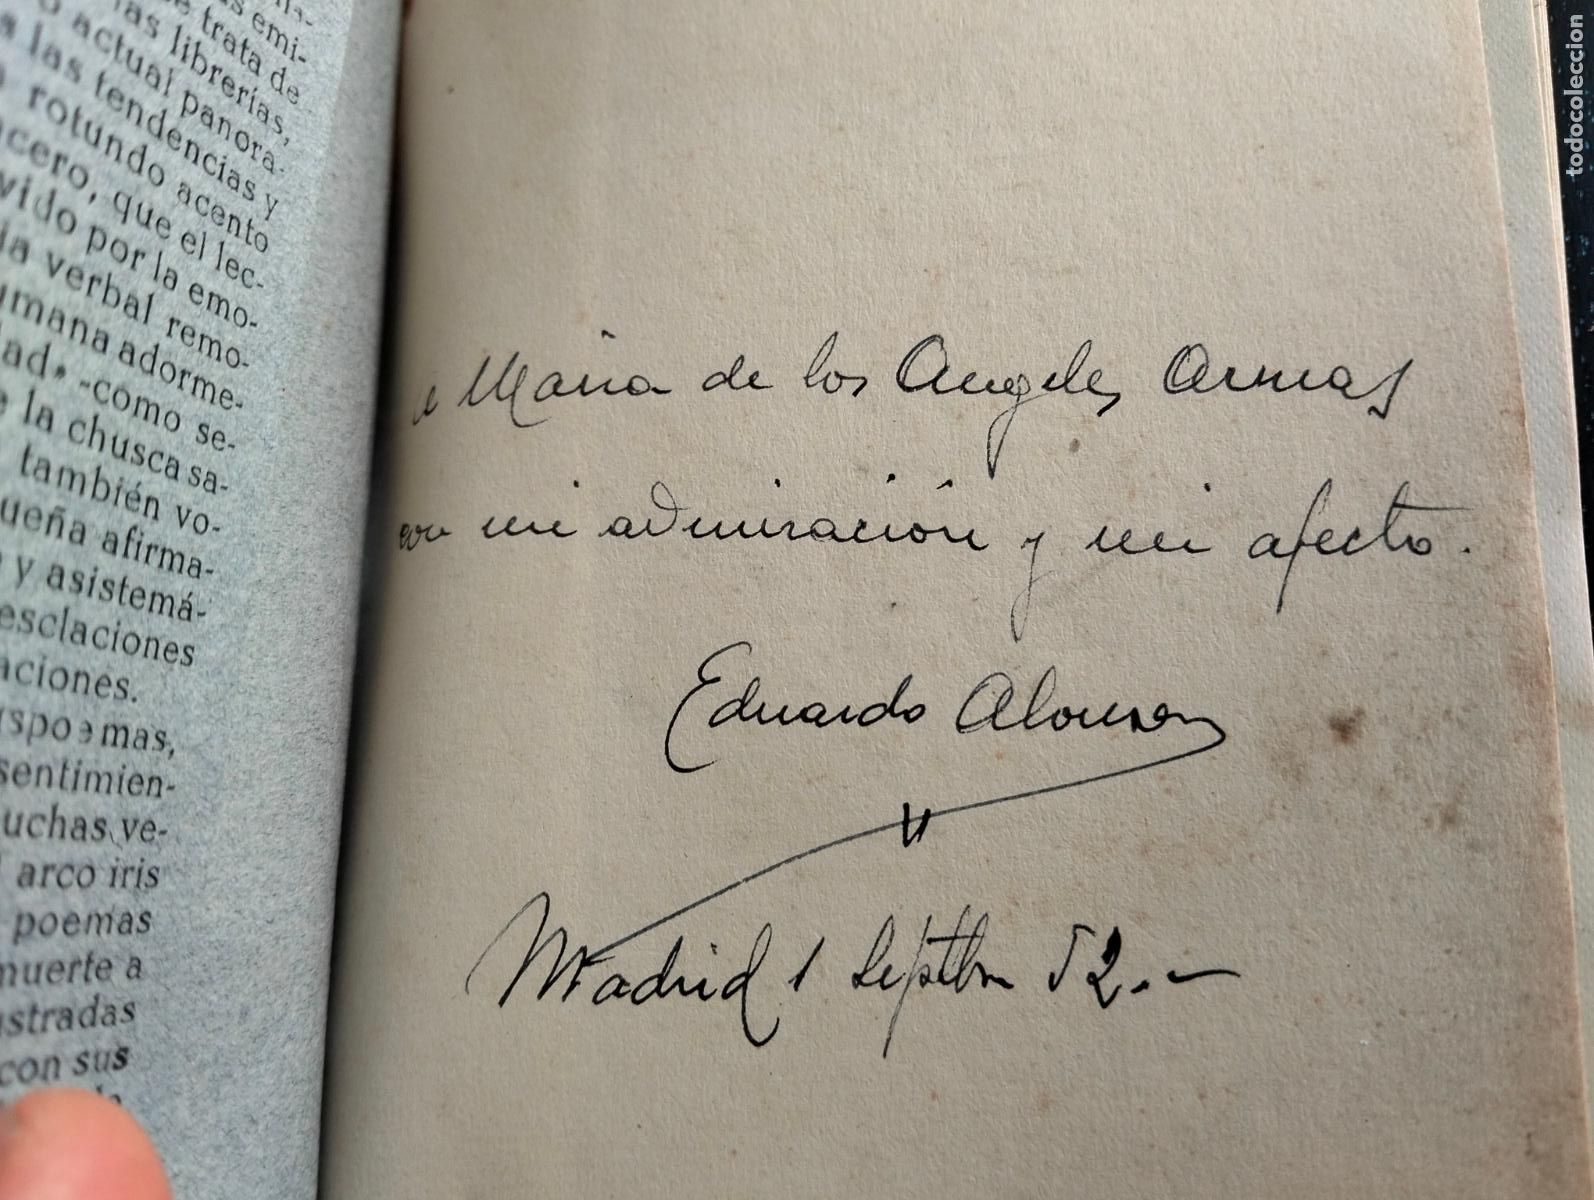 emi-
trata de
librerías,
actual panora-
las tendencias y
rotundo acento
cero, que el lec-
vido por la emo-
da verbal remo-
umana adorme-
ad» -como se-
la chusca sa-
también vo-
ueña afirma-
y asistemá-
esclaciones
aciones.
poemas,
sentimien-
uchas ve-
arco iris
poemas
muerte a
stradas
con sus
a María de los Angeles Armas
con mi admiración y mi afecto.
Eduardo Alonso
Madrid 1 Septbre 52.-
todocoleccion